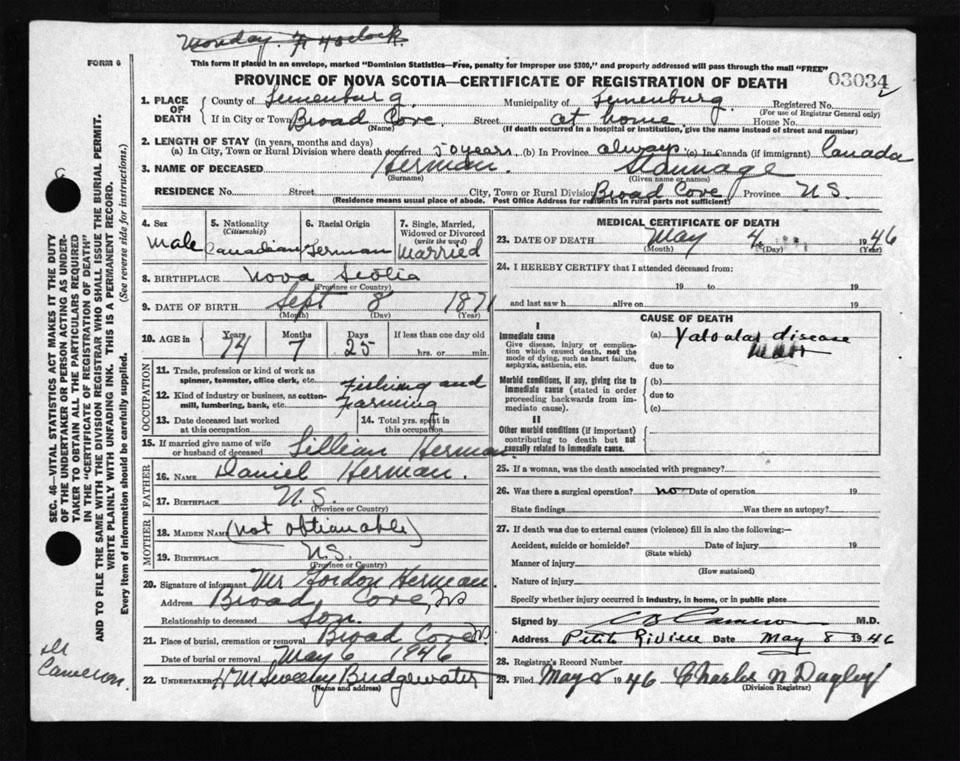 Monday
FORM 6
This form if placed in an envelope, marked "Dominion Statistics—Free, penalty for improper use $300," and properly addressed will pass through the mail "FREE"
PROVINCE OF NOVA SCOTIA—CERTIFICATE OF REGISTRATION OF DEATH
03034
1. PLACE OF DEATH { County of Lunenburg. Municipality of Lunenburg. Registered No.
(For use of Registrar General only)
If in City or Town Broad Cove. Street at home House No.
(Name) (If death occurred in a hospital or institution, give the name instead of street and number)
2. LENGTH OF STAY (in years, months and days)
(a) In City, Town or Rural Division where death occurred 50 years. (b) In Province always (c) In Canada (if immigrant) Canada
3. NAME OF DECEASED Herman. Stannage
(Surname) (Given name or names)
RESIDENCE No. Street City, Town or Rural Division Broad Cove Province N.S.
(Residence means usual place of abode. Post Office Address for residents in rural parts not sufficient)
4. Sex
male
5. Nationality
(Citizenship)
Canadian
6. Racial Origin
German
7. Single, Married, Widowed or Divorced
(write the word)
Married
8. BIRTHPLACE Nova Scotia
(Province or Country)
9. DATE OF BIRTH Sept 8 1871
(Month) (Day) (Year)
10. AGE in Years Months Days If less than one day old
74 7 25 hrs. or min.
OCCUPATION
11. Trade, profession or kind of work as spinner, teamster, office clerk, etc. Fishing and
12. Kind of industry or business, as cotton-mill, lumbering, bank, etc. Farming
13. Date deceased last worked at this occupation
14. Total yrs. spent in this occupation
15. If married give name of wife or husband of deceased Lillian Herman
FATHER
16. NAME Daniel Herman.
17. BIRTHPLACE N.S.
(Province or Country)
MOTHER
18. MAIDEN NAME (not obtianable)
19. BIRTHPLACE N.S.
(Province or Country)
20. Signature of informant Mr Gordon Herman.
Address Broad Cove, NS
Relationship to deceased Son.
21. Place of burial, cremation or removal Broad Cove NS
Date of burial or removal May 6 1946
22. UNDERTAKER Bridgewater
(Name and address)
MEDICAL CERTIFICATE OF DEATH
23. DATE OF DEATH May 4 1946
(Month) (Day) (Year)
24. I HEREBY CERTIFY that I attended deceased from:
19 to 19
and last saw h alive on 19
CAUSE OF DEATH
I
Immediate cause
Give disease, injury or complication which caused death, not the mode of dying, such as heart failure, asphyxia, asthenia, etc.
(a) Valvular disease
heart
due to
Morbid conditions, if any, giving rise to immediate cause (stated in order proceeding backwards from immediate cause).
(b)
due to
(c)
II
Other morbid conditions (if important) contributing to death but not causally related to immediate cause.
25. If a woman, was the death associated with pregnancy?
26. Was there a surgical operation? no Date of operation 19
State findings Was there an autopsy?
27. If death was due to external causes (violence) fill in also the following:—
Accident, suicide or homicide? Date of injury 19
(State which)
Manner of injury
(How sustained)
Nature of injury
Specify whether injury occurred in industry, in home, or in public place
Signed by C B Cameron M.D.
Address Petite Riviere Date May 8 1946
28. Registrar's Record Number
29. Filed May 1946 Charles N Dagley
(Division Registrar)
SEC. 46—VITAL STATISTICS ACT MAKES IT THE DUTY
OF THE UNDERTAKER OR PERSON ACTING AS UNDER-
TAKER TO OBTAIN ALL THE PARTICULARS REQUIRED
IN THE "CERTIFICATE OF REGISTRATION OF DEATH"
AND TO FILE THE SAME WITH THE DIVISION REGISTRAR WHO SHALL ISSUE THE BURIAL PERMIT.
WRITE PLAINLY WITH UNFADING INK. THIS IS A PERMANENT RECORD.
Every item of information should be carefully supplied. (See reverse side for instructions.)
Dr
Cameron.